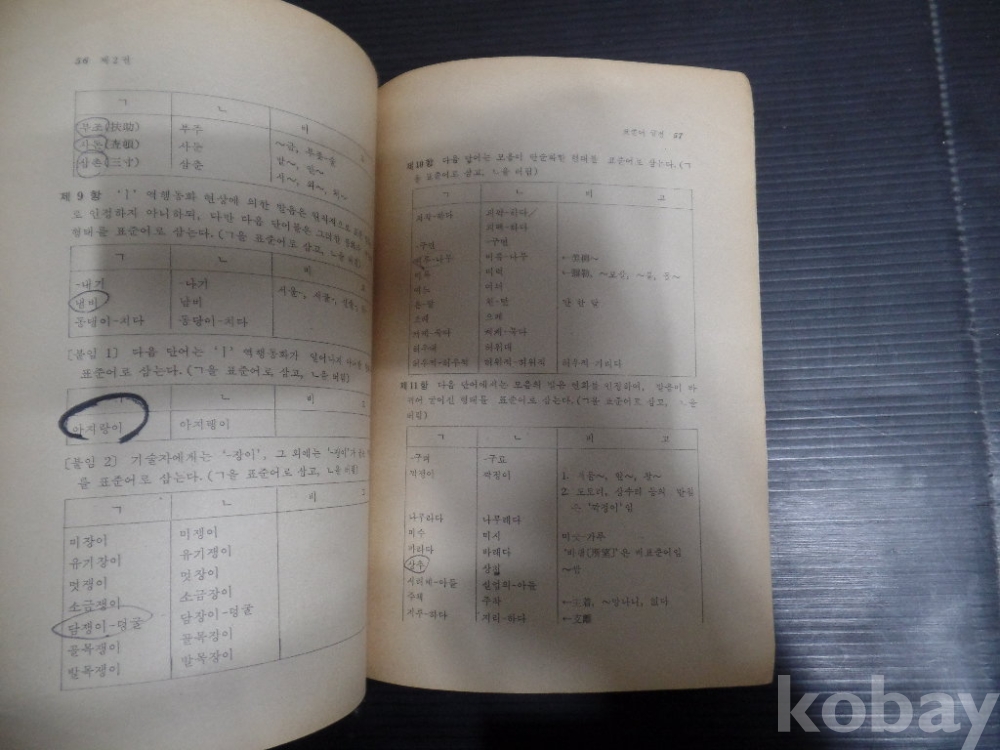 56 제 2 편
ㄱ ㄴ 비
부조(扶助) 부주
사돈(査頓) 사둔 ～집, 부좃-술
삼촌(三寸) 삼춘 밭～, 안～
제 9 항 'ㅣ' 역행동화 현상에 의한 발음은
로 인정하지 아니하되, 다만 다음 단어들은 그러한
형태를 표준어로 삼는다.(ㄱ을 표준어로 삼고, ㄴ을 버림)
ㄱ ㄴ 비
-내기 -나기 서울-, 시골-,
냄비 남비
동댕이-치다 동당이-치다
[붙임 1] 다음 단어는 'ㅣ' 역행동화가 일어나지
표준어로 삼는다.(ㄱ을 표준어로 삼고, ㄴ을 버림)
ㄱ ㄴ 비
아지랑이 아지랭이
[붙임 2] 기술자에게는 '-장이', 그 외에는 '-쟁이'가
를 표준어로 삼는다.(ㄱ을 표준어로 삼고, ㄴ을 버림)
ㄱ ㄴ 비
미장이 미쟁이
유기장이 유기쟁이
멋쟁이 멋장이
소금쟁이 소금장이
담쟁이-덩굴 담장이-덩굴
골목쟁이 골목장이
발목쟁이 발목장이
57
제10항 다음 단어는 모음이 단순화한 형태를 표준어로 삼는다.(ㄱ
을 표준어로 삼고, ㄴ을 버림)
ㄱ ㄴ 비 고
괴팍-하다 괴퍅-하다/
괴팩-하다
-구먼 -구면
미루-나무 미류-나무 ←美柳～
미륵 미력 ←彌勒, ～보살, ～불, 돌～
여느 여늬
온-달 왼-달 만 한 달
으레 으례
케케-묵다 켸켸-묵다
허우대 허위대
허우적-허우적 허위적-허위적 허우적-거리다
제11항 다음 단어에서는 모음의 발음 변화를 인정하여, 발음이 바
뀌어 굳어진 형태를 표준어로 삼는다.(ㄱ을 표준어로 삼고, ㄴ을
버림)
ㄱ ㄴ 비 고
-구려 -구료
깍쟁이 깍정이 1. 서울～, 알～, 찰～
2. 도토리, 상수리 등의 받침
은 '깍정이'임
나무라다 나무래다
미수 미시 미숫-가루
바라다 바래다 '바램[所望]'은 비표준어임
상추 상치 ～쌈
시러베-아들 실업의-아들
주책 주착 ←主着, ～망나니, ～없다
지루-하다 지리-하다 ←支離
kobay